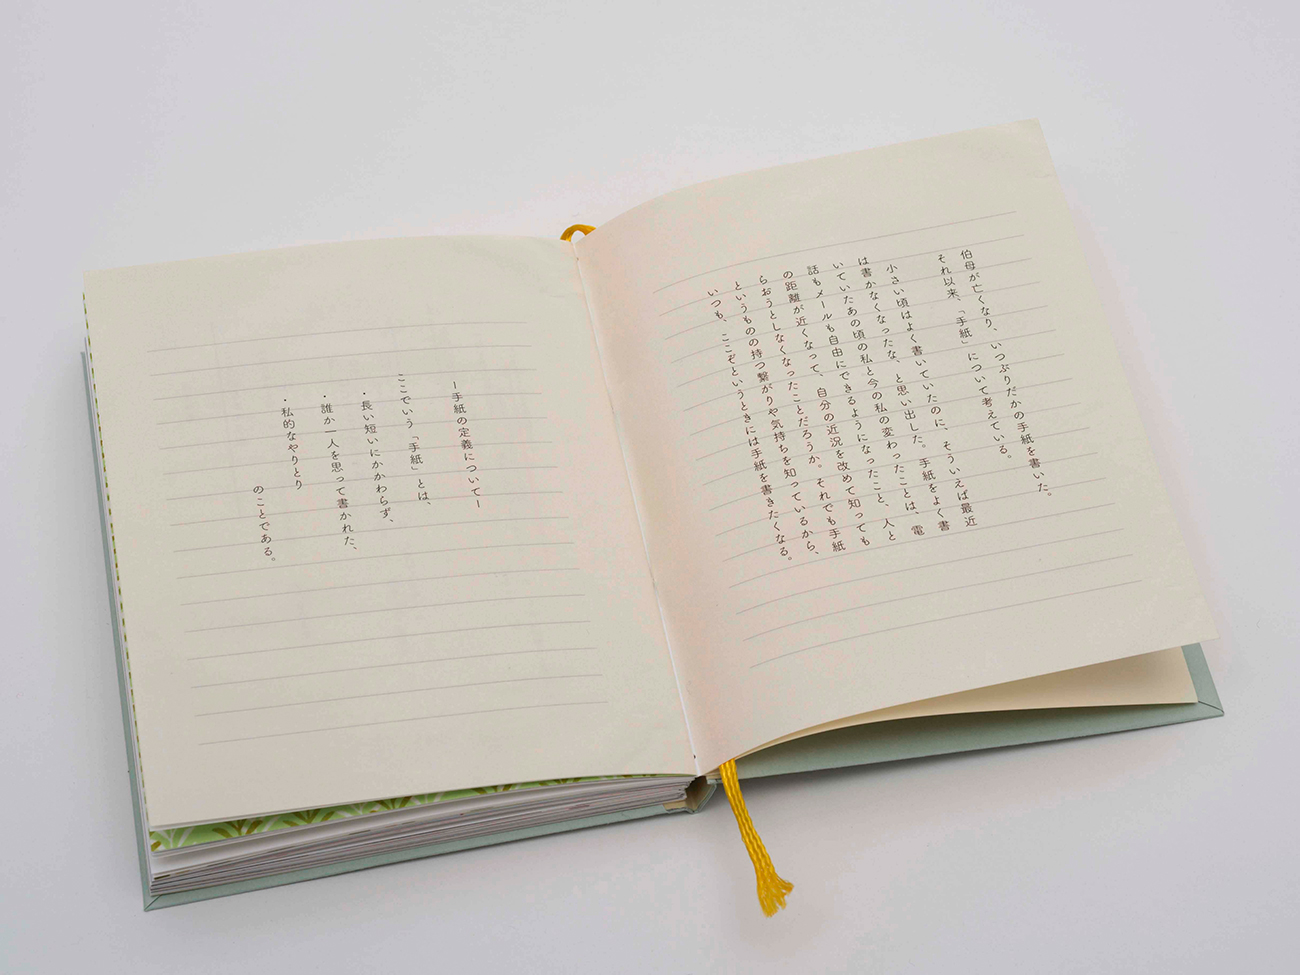 伯母が亡くなり、いつぶりだかの手紙を書いた。
それ以来、「手紙」について考えている。
小さい頃はよく書いていたのに、そういえば最近
は書かなくなったな、と思い出した。手紙をよく書
いていたあの頃の私と今の私の変わったことは、電
話もメールも自由にできるようになったこと、人と
の距離が近くなって、自分の近況を改めて知っても
らおうとしなくなったことだろうか。それでも手紙
というものの持つ繋がりや気持ちを知っているから、
いつも、ここぞというときには手紙を書きたくなる。
ー手紙の定義についてー
ここでいう「手紙」とは、
・長い短いにかかわらず、
・誰か一人を思って書かれた、
・私的なやりとり
のことである。